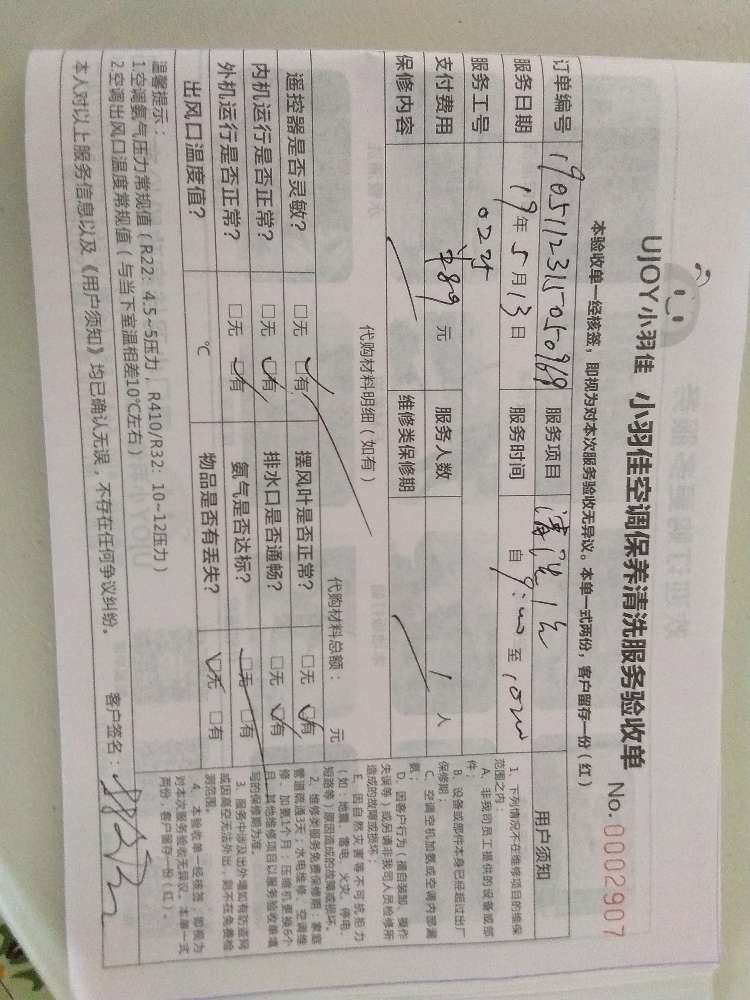 UJOY小羽佳 小羽佳空调保养清洗服务验收单 No. 0002907
本验收单一经核签，即视为对本次服务验收无异议。本单一式两份，客户留存一份（红）
订单编号 19051123115050969 服务项目 清洗1台
服务日期 19年5月13日 服务时间 自9:00至10:00
服务工号 022
支付费用 289元 服务人数 1人
保修内容 维修类保修期
代购材料明细（如有） 代购材料总额： 元
遥控器是否灵敏？ □无 □有 摆风叶是否正常？ □无 □有
内机运行是否正常？ □无 □有 排水口是否通畅？ □无 □有
外机运行是否正常？ □无 □有 氨气是否达标？ □无 □有
出风口温度值？ ℃ 物品是否有丢失？ □无 □有
温馨提示：
1.空调氨气压力常规值（R22：4.5~5压力，R410/R32：10~12压力）
2.空调出风口温度常规值（与当下室温相差10℃左右）
本人对以上服务信息以及《用户须知》均已确认无误，不存在任何争议纠纷。 客户签名：
用户须知
1、下列情况不在维修项目的维保
范围之内：
A、非我司员工提供的设备或部
件；
B、设备或部件本身已经超过出厂
保修期；
C、空调空机加氨或空调内部漏
氨；
D、因客户行为（擅自装卸、操作
失误等）或另请非我司人员检修所
造成的故障或损坏；
E、因自然灾害等不可抗拒力
（如：地震、雷电、火灾、停电、
短路等）原因造成的故障或损坏。
2、维修类服务免费保修期：家庭
管道疏通3天；水电维修、空调维
修、加氨1个月；压缩机更换6个
月，其他维修项目以服务验收单填
写的保修期为准。
3、服务中涉及出外墙如有防盗网
或因高空无法外出，则不在免费检
测范围。
4、本验收单一经核签，即视为
对本次服务验收无异议。本单一式
两份，客户留存一份（红）。